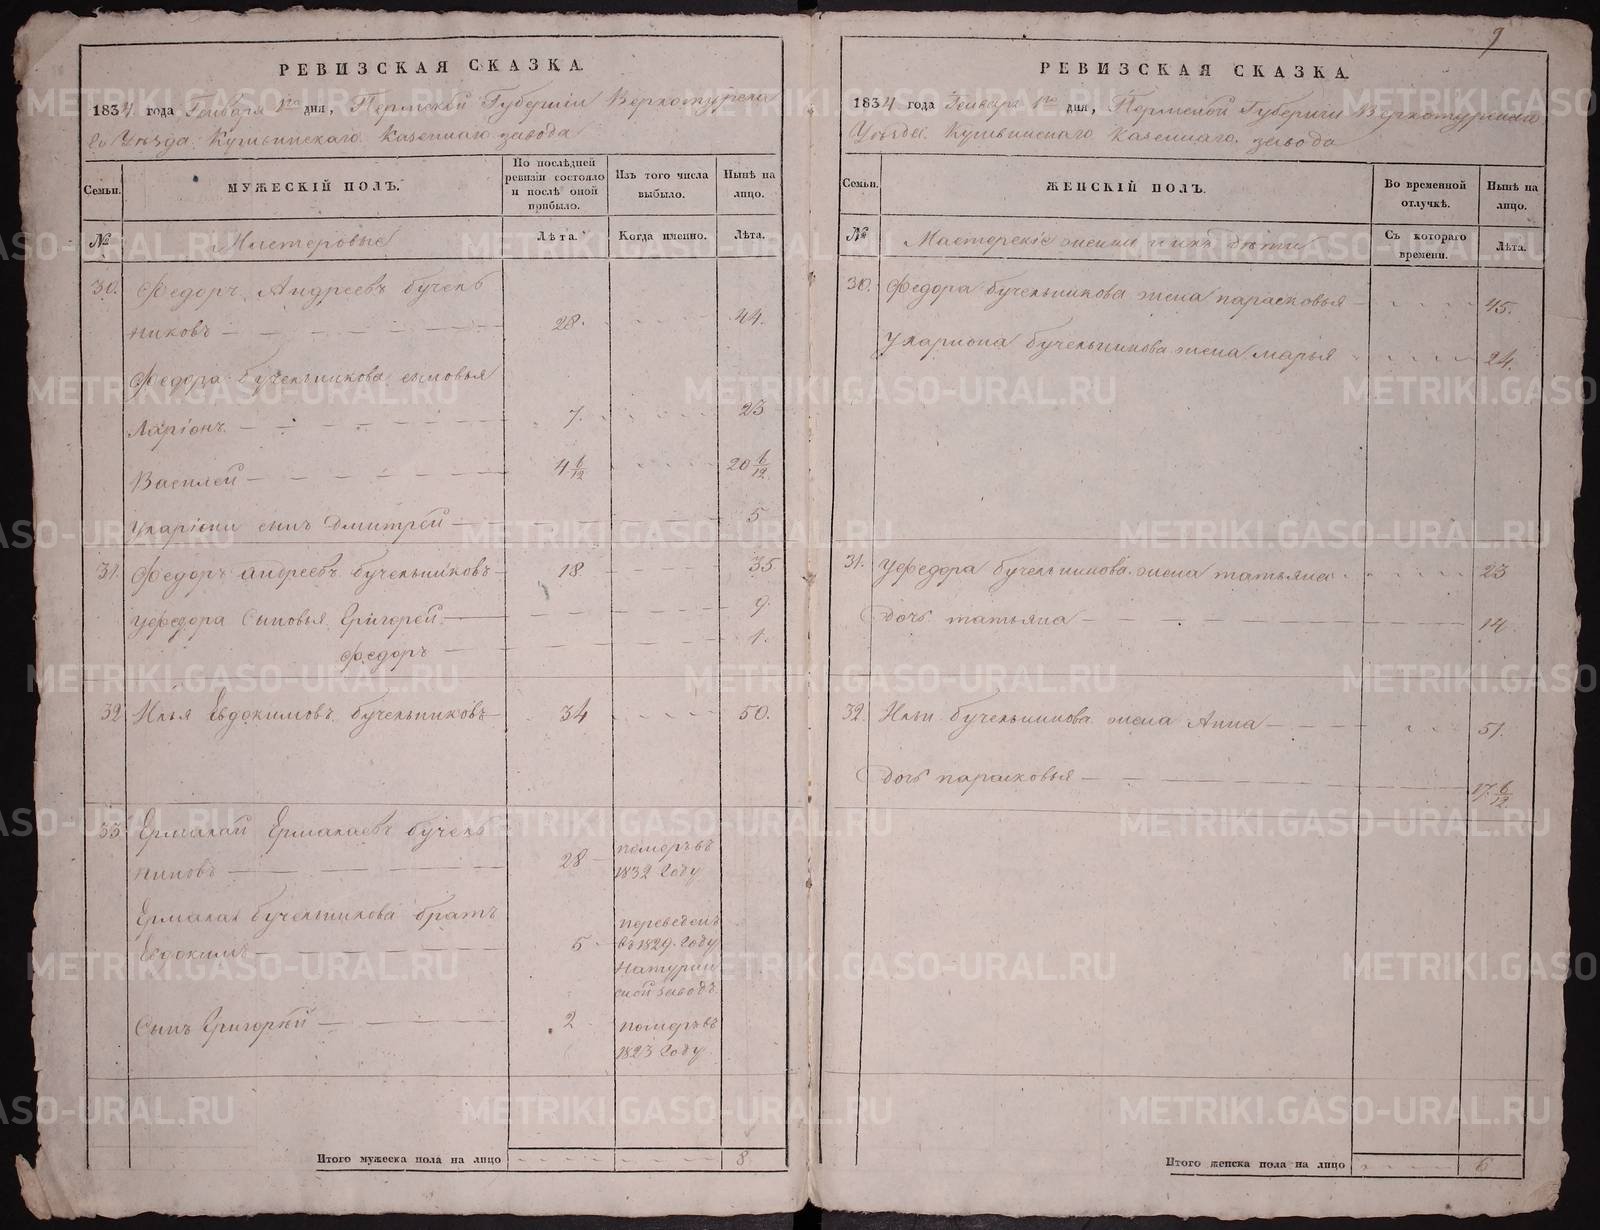 9
РЕВИЗСКАЯ СКАЗКА.
1834 года Генваря 1го дня, Пермской Губернии Верхотурска
го Уѣзда Кушвинскаго Казеннаго завода
Семьи.
МУЖЕСКІЙ ПОЛЪ.
По послѣдней ревизіи состояло и послѣ оной прибыло.
Изъ того числа выбыло.
Нынѣ на лицо.
№
Мастеровые
Лѣта.
Когда именно.
Лѣта.
30. Федоръ Андреевъ бучель
никовъ 28. 44.
Федора бучельникова сыновья
Ларіонъ 7. 23
Василей 4 6/12 20 6/12
Уларіона сынъ Дмитрей 5
31. Федоръ андреевъ бучельниковъ 18. 35
уфедора Сыновья Григорей 9.
Федоръ 1.
32 Илья Евдокимовъ бучельниковъ 34 50.
33. Ермалай Ермалаевъ бучель
никовъ 28 померъ въ
1832 Году
Ермалая бучельникова братъ
Евдокимъ 5 переведенъ
въ 1829. Году
Натурин
ской заводъ
Сынъ Григорей 2 померъ въ
1823 Году
Итого мужеска пола на лицо 8
РЕВИЗСКАЯ СКАЗКА.
1834 года Генваря 1го дня, Пермской Губернии Верхотурскаго
Уѣзда Кушвинскаго Казеннаго завода
Семьи.
ЖЕНСКІЙ ПОЛЪ.
Во временной отлучкѣ.
Нынѣ на лицо.
№
Мастерскіе жены и ихъ дѣти
Съ котораго времени.
Лѣта.
30. Федора бучельникова жена парасковья 45.
Улариона бучельникова жена марья 24.
31. Уфедора бучельникова жена татьяна 23
Дочь татьяна 14
32. Ильи бучельникова жена Анна 51.
Дочь парасковья 17 6/12
Итого женска пола на лицо 6
METRIKI.GASO-URAL.RU